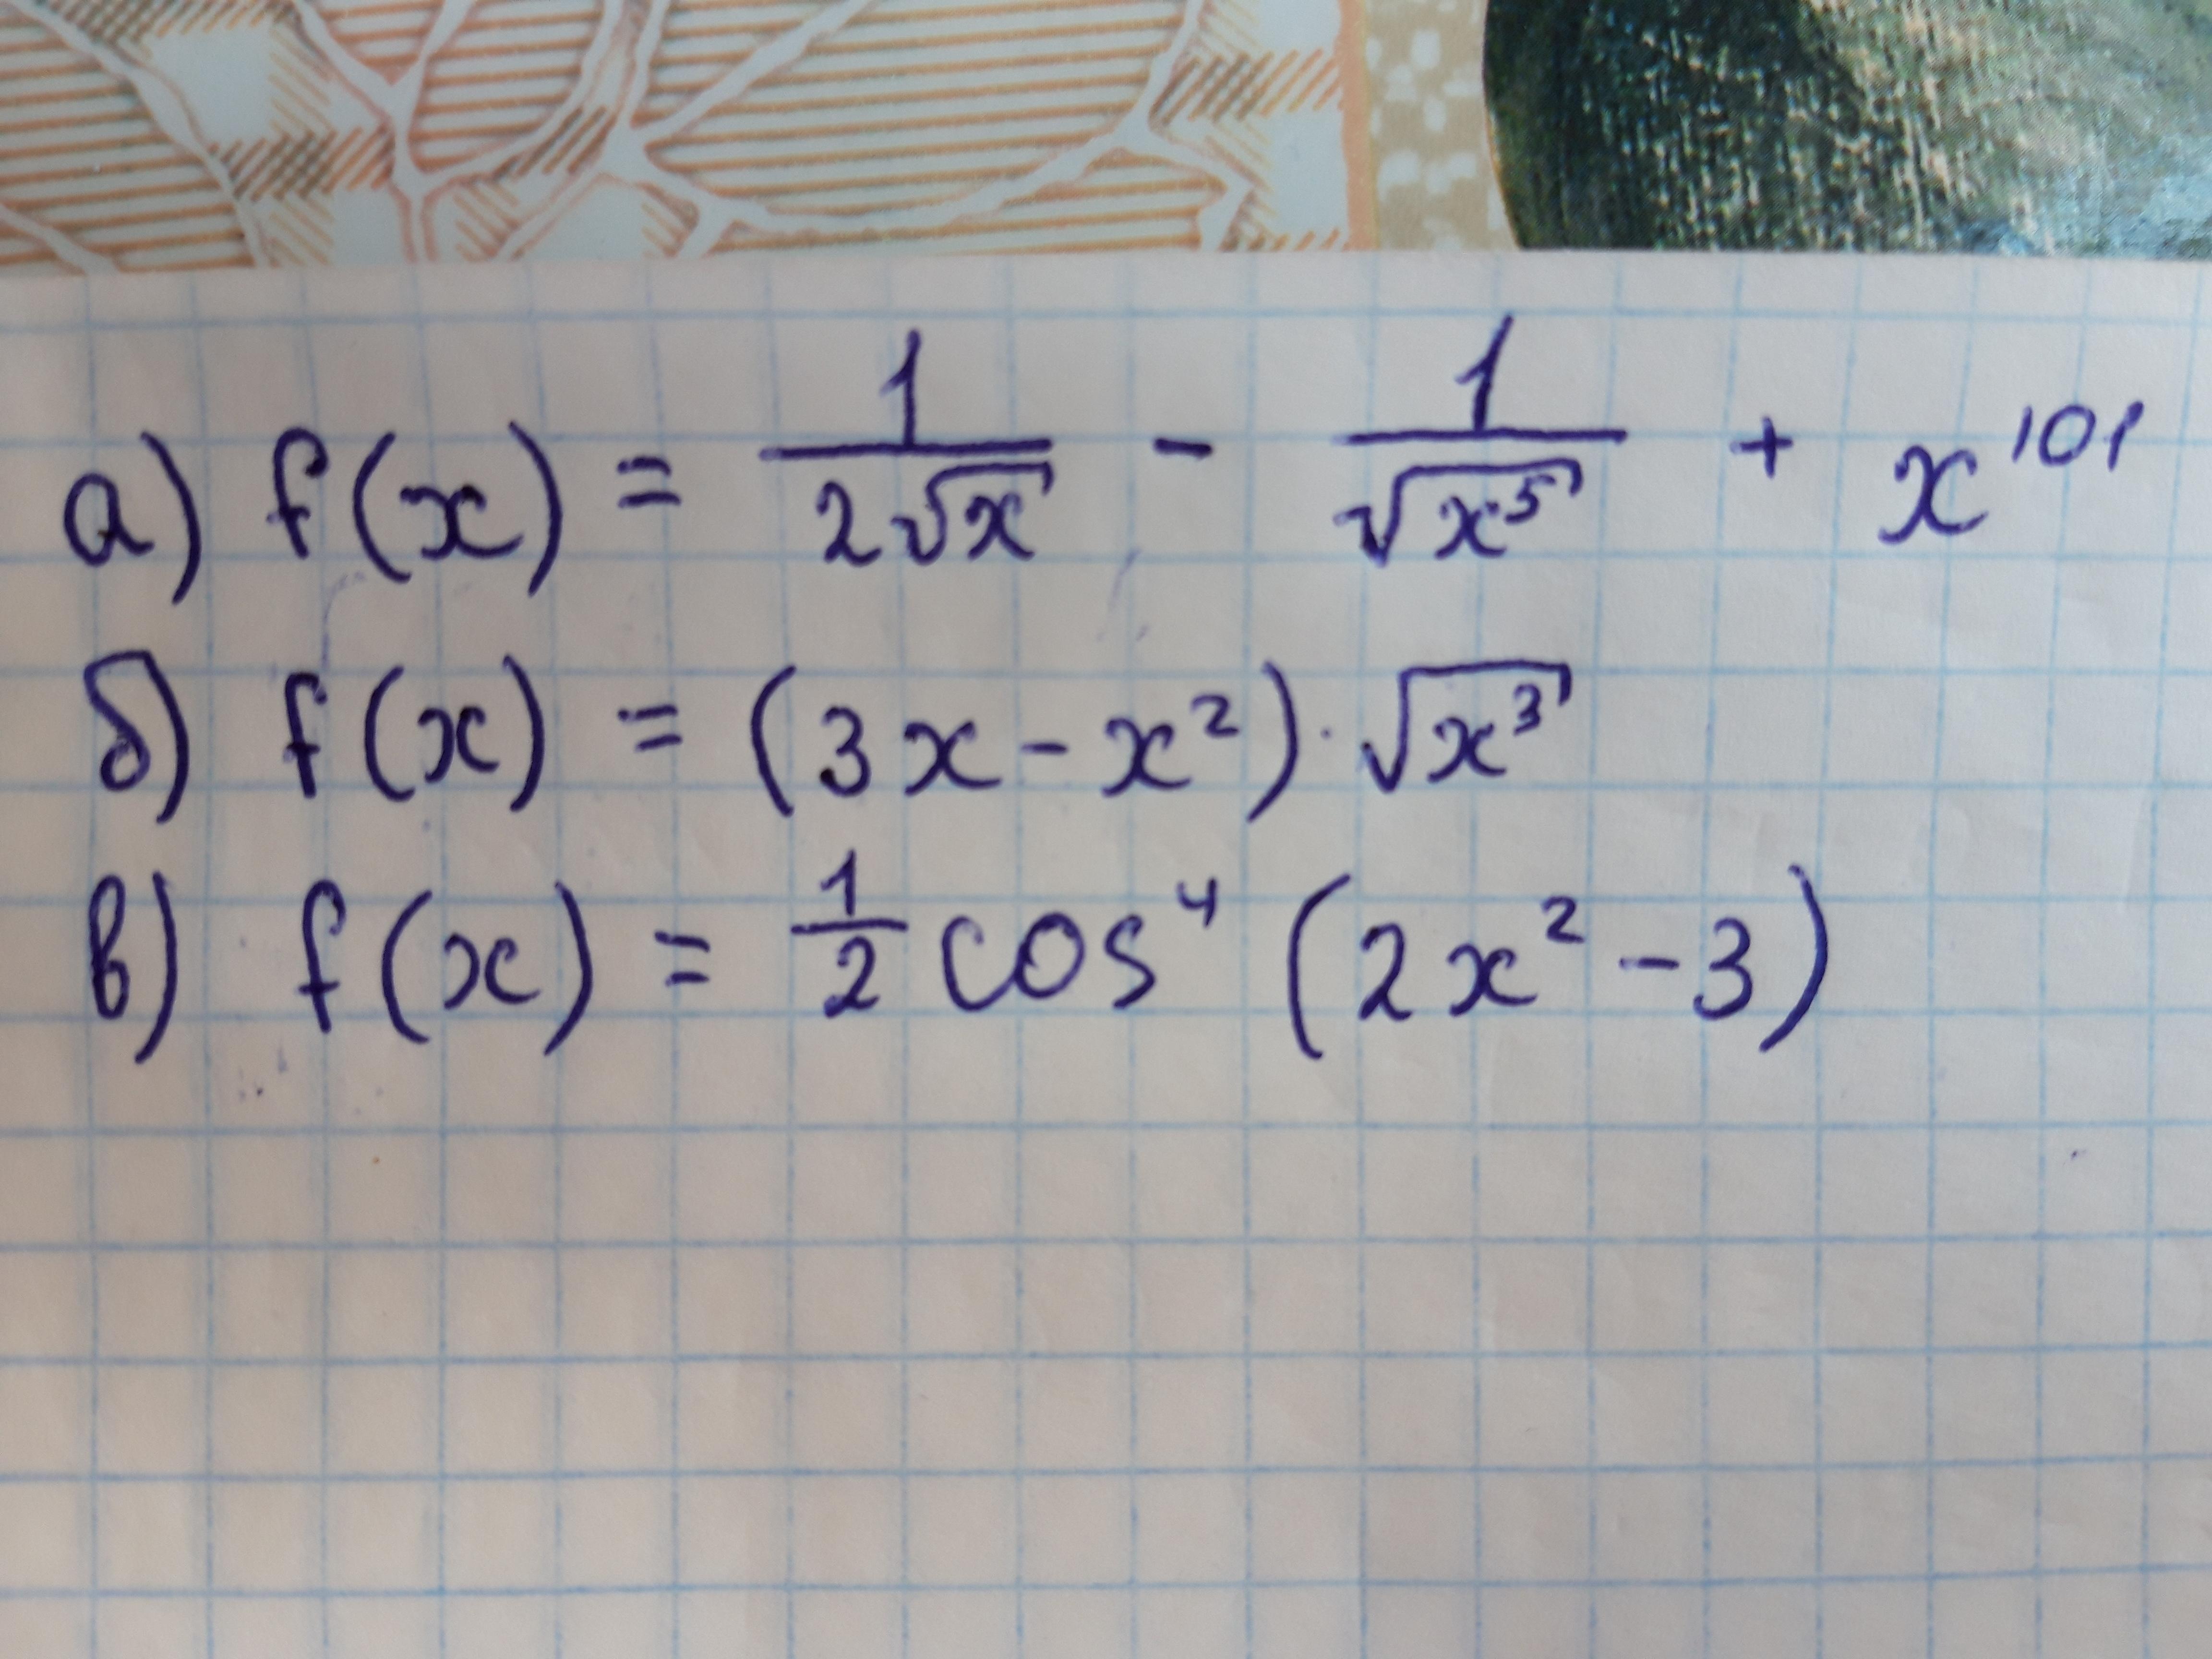 а) f(x) = 1/(2√x) - 1/√(x⁵) + x¹⁰¹
б) f(x) = (3x - x²) · √(x³)
в) f(x) = 1/2 cos⁴ (2x² - 3)